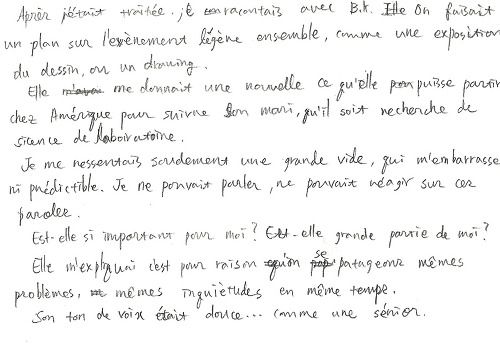 Après j'était traitée. je racontais avec B.K. On faisait
un plan sur l'évènement légène ensemble, comme une exposition
du dessin, ou un drawing.
Elle me donnait une nouvelle ce qu'elle puisse partir
chez Amérique pour suivre son mari, qu'il soit recherche de
sicence de laboiratoire.
Je me ressentais soudement une grande vide, qui m'embarrasse
ni prédictible. Je ne pouvait parler, ne pouvait réagir sur ces
parolee.
Est-elle si important pour moi? Est-elle grande partie de moi?
Elle m'expliquai c'est pour raison qu'on se patageons mêmes
problèmes, mêmes inquiètudes en même temps.
Son ton de voix était douce... comme une sénior.